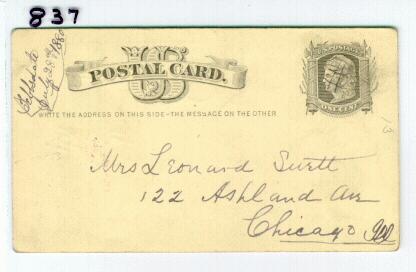 837
U.S. POSTAGE
POSTAL CARD.
WRITE THE ADDRESS ON THIS SIDE - THE MESSAGE ON THE OTHER
ONE CENT
July 28th 1880
13
Mrs Leonard Swett
122 Ashland Ave
Chicago Ill